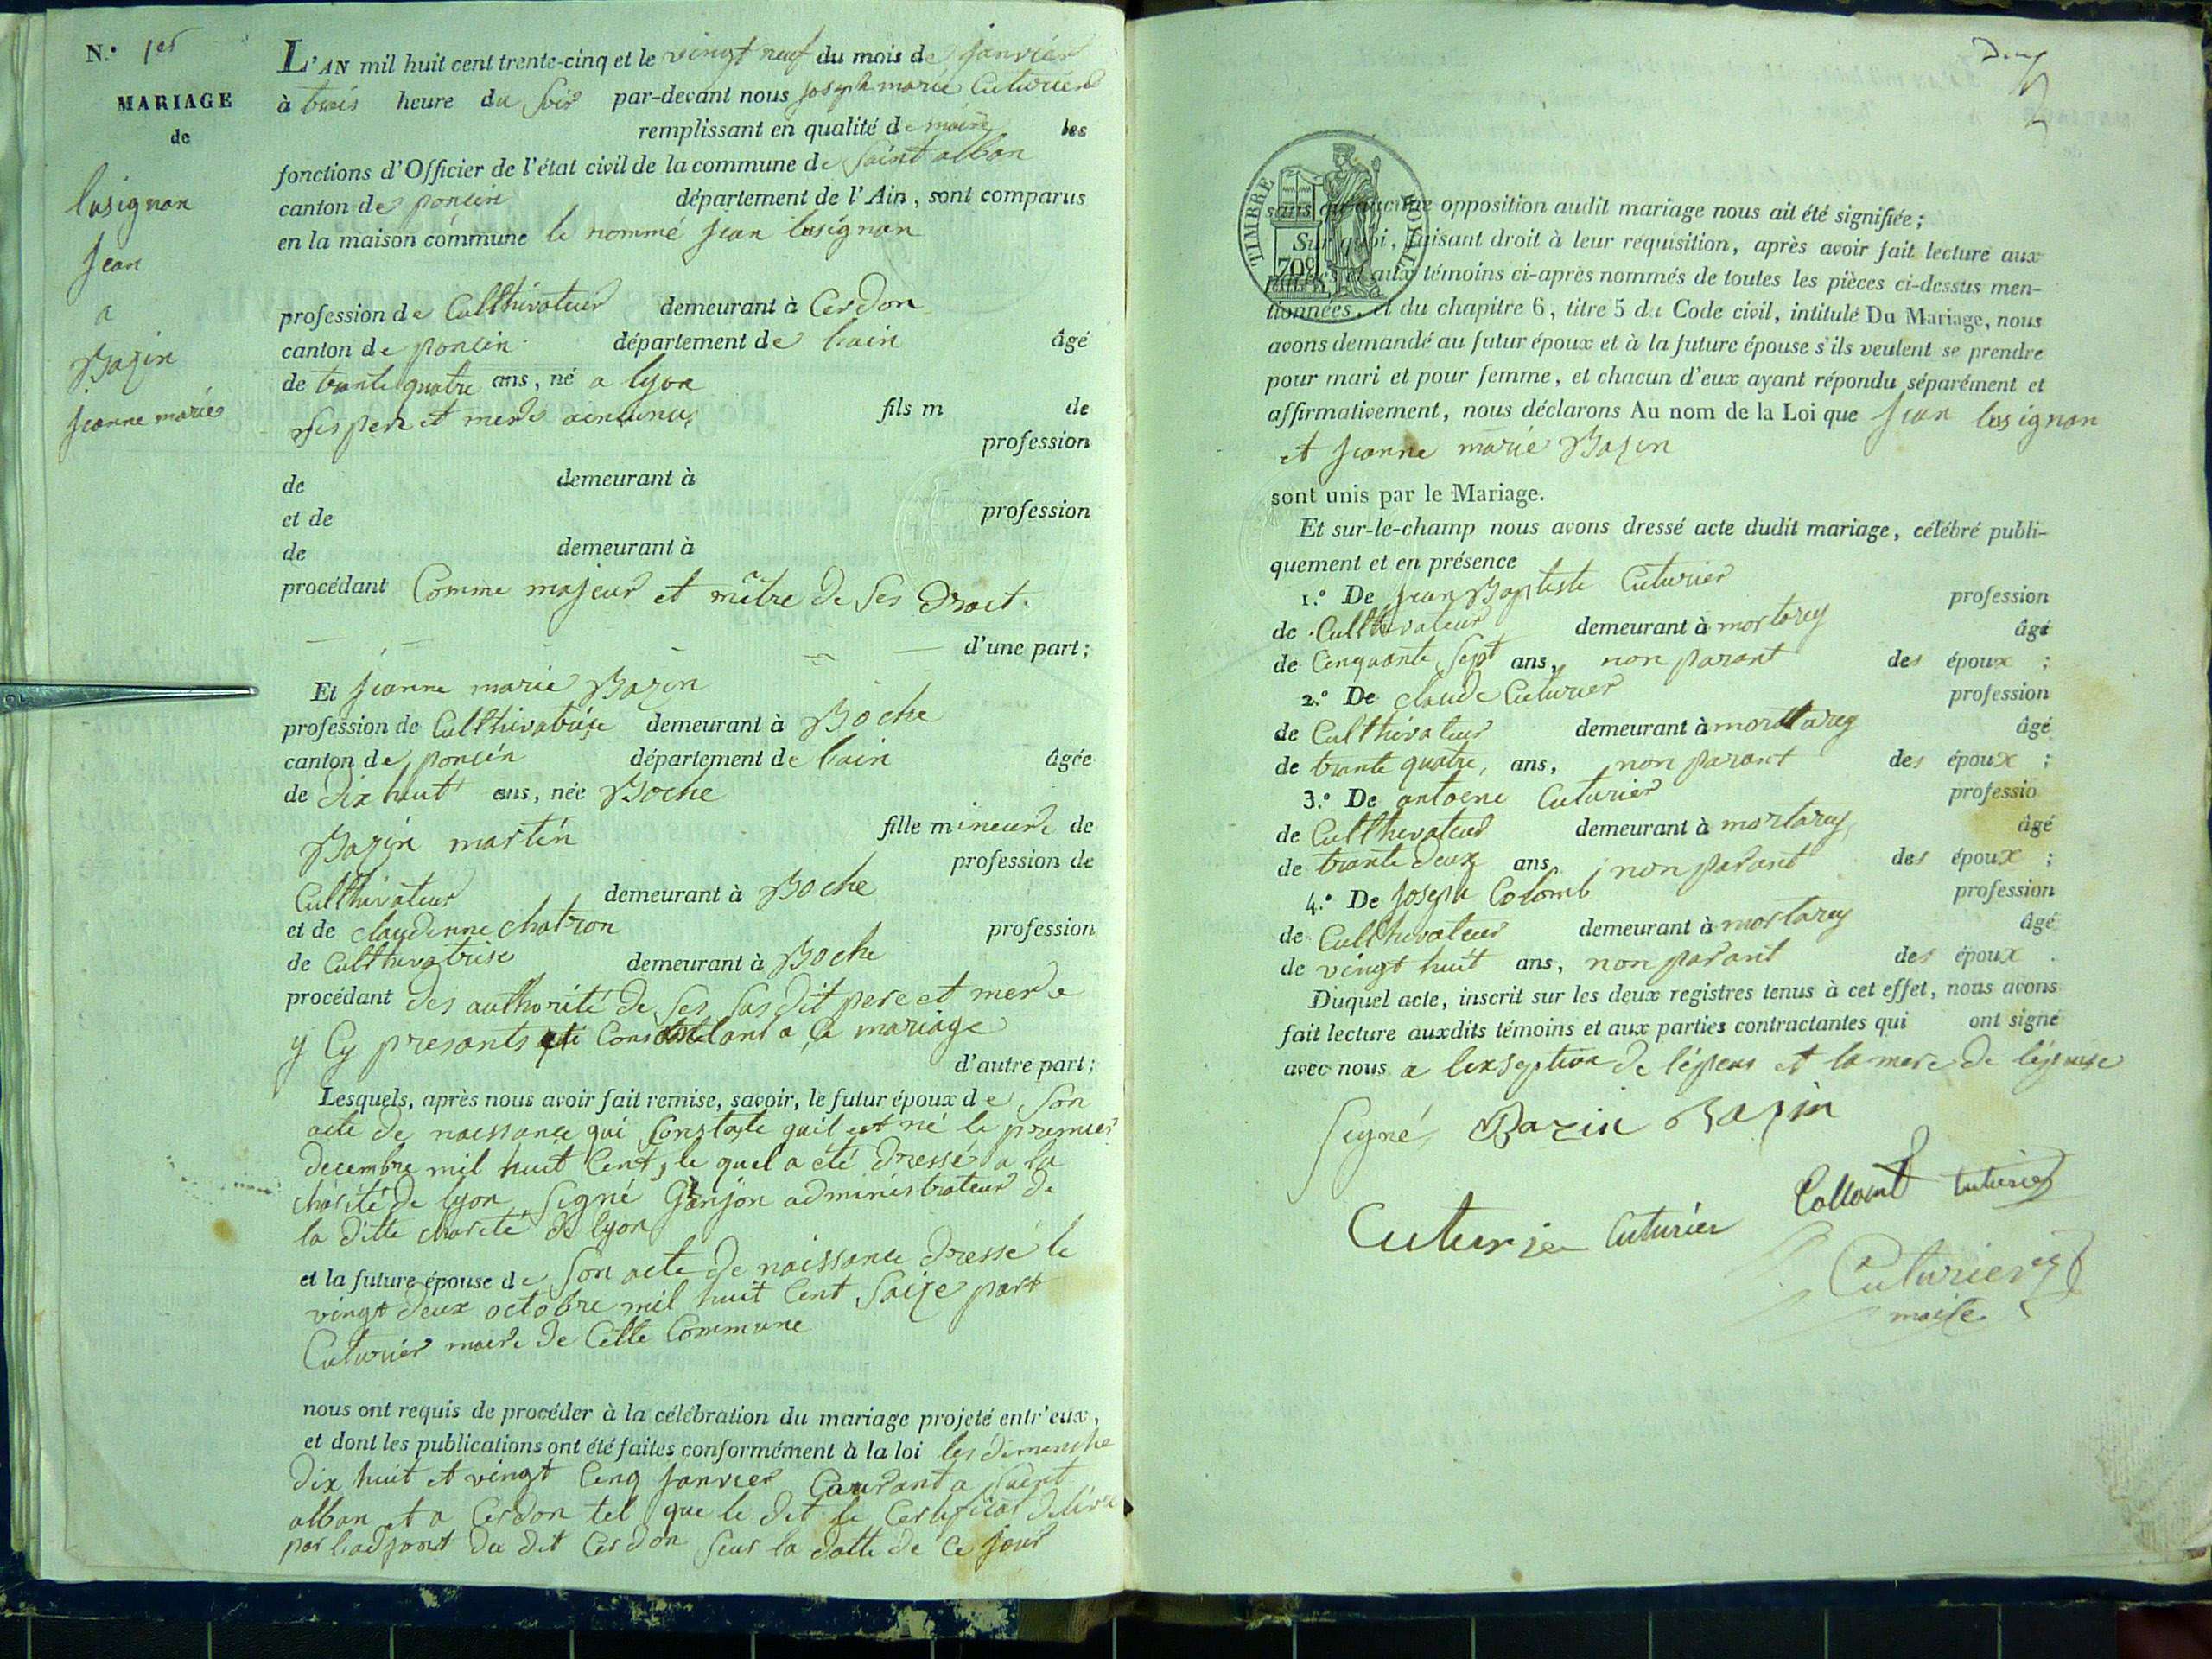 N.º 1er
MARIAGE
de
lusignan
jean
a
Bazin
jeanne marie
L'AN mil huit cent trente-cinq et le vingt neuf du mois de janvier
à trois heure du soir par-devant nous joseph marie Cuturier
remplissant en qualité de maire les
fonctions d'Officier de l'état civil de la commune de saint alban
canton de poncin département de l'Ain, sont comparus
en la maison commune le nommé jean lusignan
profession de Culthivateur demeurant à Cerdon
canton de poncin département de lain âgé
de trante quatre ans, né a lyon
fils m de
ses pere et mere
profession
de demeurant à
et de profession
de demeurant à
procédant Comme majeur et mêtre de ses droit.
d'une part;
Et jeanne marie Bazin
profession de Culthivatrise demeurant à Boche
canton de poncin département de lain âgée
de dix huit ans, née Boche
fille mineure de
Bazin martin
profession de
Culthivateur demeurant à Boche
et de claudinne chatron profession
de Culthivatrise demeurant à Boche
procédant des authorité de ses sus dit pere et mere
y Cy presants a ce mariage
d'autre part;
Lesquels, après nous avoir fait remise, savoir, le futur époux de son
acte de naissance qui Constate quil est né le premier
decembre mil huit Cent, le quel a été dressé a la
charité de lyon signé administrateur de
la ditte charité de lyon
et la future épouse de son acte de naissance dressé le
vingt deux octobre mil huit Cent saize part
Cuturier maire de Cette Commune
nous ont requis de procéder à la célébration du mariage projeté entr'eux,
et dont les publications ont été faites conformément à la loi les dimanche
dix huit et vingt Cinq janvier Courant a saint
alban et a Cerdon tel que le dit le Certificat delivré
par ladjoint du dit Cerdon sous la datte de ce jour
TIMBRE ROYAL
70c
sans qu'aucune opposition audit mariage nous ait été signifiée;
Sur quoi, faisant droit à leur réquisition, après avoir fait lecture aux
parties et aux témoins ci-après nommés de toutes les pièces ci-dessus men-
tionnées, et du chapitre 6, titre 5 du Code civil, intitulé Du Mariage, nous
avons demandé au futur époux et à la future épouse s'ils veulent se prendre
pour mari et pour femme, et chacun d'eux ayant répondu séparément et
affirmativement, nous déclarons Au nom de la Loi que jean lusignan
et jeanne marie Bazin
sont unis par le Mariage.
Et sur-le-champ nous avons dressé acte dudit mariage, célébré publi-
quement et en présence
1.º De jean Baptiste Cuturier profession
de Culthivateur demeurant à mortarey âgé
de Cinquante sept ans, non parant des époux ;
2.º De claude Cuturier profession
de Culthivateur demeurant à mortarey âgé
de trante quatre, ans, non parant des époux ;
3.º De antoene Cuturier professio
de Culthivateur demeurant à mortarey âgé
de trante deux ans, non parant des époux ;
4.º De joseph Colomb profession
de Culthivateur demeurant à mortarey âgé
de vingt huit ans, non parant des époux .
Duquel acte, inscrit sur les deux registres tenus à cet effet, nous avons
fait lecture auxdits témoins et aux parties contractantes qui ont signé
avec nous a lexseption de lépeus et la mere de lépouse
signé, Bazin Bazin
Cuturier Cuturier Collomb Cuturier
Cuturier
maire